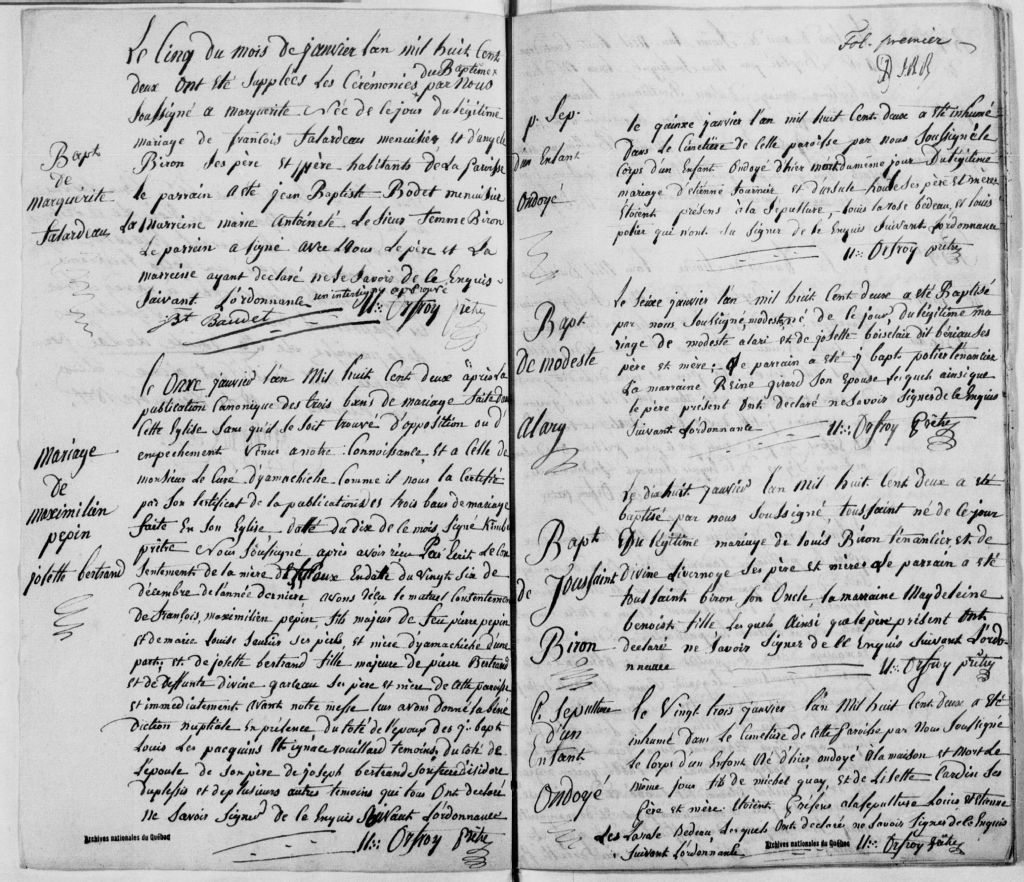 Le Cinq du mois de janvier l'an mil huit Cent
du Baptême
deux ont été Supplées Les Cérémonies par Nous
Soussigné a marguerite Née de le jour du légitime
mariage de françois falardeau menuisier et d'angele
Bapt
Biron Ses père et mère habitants de La Paroisse
de
le parrain a été jean Baptiste Bodet menuisier
marguerite
La Marreine marie Antoinete Lesieur femme Biron
falardeau
Le parrain a Signé avec Nous Le père et La
marreine ayant déclaré ne Savoir de ce Enquis
Suivant L'ordonnance un interligne approuvé
Bt Baudet U:: Orfroy prêtre
le Onze janvier l'an Mil huit Cent deux après la
publication Canonique des trois bans de mariage faite dans
Cette Eglise Sans qu'il Se Soit trouvé d'opposition ou d'
mariage
empechement Venus a notre Connoissance, et a Celle de
de
monsieur Le Curé d'yamachiche Comme il nous la Certifié
maximilien
par Son Certificat de la publication des trois bans de mariage
pepin
faite En Son Eglise daté du dix de ce mois Signé
prêtre Nous Soussigné après avoir reçu Par Ecrit Le Con
josette bertrand
Sentements de la mère de Endate du Vingt Six de
décembre de l'année dernière avons reçu le mutuel Consentement
de françois, maximilien pepin, fils majeur de feu pierre pepin
et de marie Louise Ses père et mère d'yamachiche d'une
part; et de josette bertrand fille majeure de pierre Bertrand
et de deffunte divine garceau Ses père et mère de Cette paroisse
et immédiatement avant notre messe Lus avons donné la béné
diction nuptiale En présence du Coté de l'epoux des J: bapt
Louis Les pacquins et ignace vouillard temoins, du Coté de
L'epouse de Son père de joseph bertrand Son frere d'isidore
duplessis et de plusieurs autres témoins qui tous Ont déclaré
ne Savoir Signer de ce Enquis Suivant L'ordonnance
U:: Orfroy prêtre
Archives nationales du Québec
Fol. premier
p. Sep.
le quinze janvier l'an mil huit Cent deux a été inhumé
Dans le Cimetière de Cette paroisse par nous Soussigné le
d'un Enfant
Corps d'un Enfant Ondoyé d'hier mort du même jour Du légitime
mariage d'etienne fournier et d'ursule houle Ses père et mère
Ondoyé
étoient présens à la Sepulture, Louis la rose bedeau, et Louis
potier qui n'ont Su Signer de ce Enquis Suivant L'ordonnance
U:: Orfroy prêtre
Le Seize janvier l'an mil huit Cent deux a été Baptisé
Bapt
par nous Soussigné, modeste, né de ce jour, du légitime ma
riage de modeste alari et de josette boisclair dit bériau Ses
de modeste
père et mère; Le parrain a été j bapt potier tenancier
La marraine Reine girard Son epouse Lesquels ainsi que
le père présent Ont déclaré ne Savoir Signer de ce Enquis
alary
Suivant L'ordonnance U:: Orfroy Prêtre
Le dix huit janvier l'an mil huit Cent deux a été
baptisé par nous Soussigné toussaint né de ce jour
Bapt
Du légitime mariage de Louis Biron tenancier et de
de Toussaint
Divine Livernoge Ses père et mère Le parrain a été
toussaint biron Son Oncle, la marraine Magdeleine
benoist fille Lesquels Ainsi que le père présent Ont
Biron
declaré ne Savoir Signer de ce Enquis Suivant L'ordo-
nnance U:: Orfroy prêtre
P. Sepulture
le Vingt trois janvier l'an Mil huit Cent deux a été
d'un
inhumé dans Le Cimetière de Cette Paroisse par Nous Soussigné
Enfant
Le Corps d'un Enfant Né d'hier, ondoyé a la maison et Mort Le
Ondoyé
même jour fils de michel quay, et de Lisette Cardin Ses
Père et mère. Etoient Présens a la sepulture Louis et Etienne
Les Larose Bedeau Lesquels Ont declaré ne Savoir Signer de ce Enquis
Suivant L'ordonnance U:: Orfroy Prêtre
Archives nationales du Québec